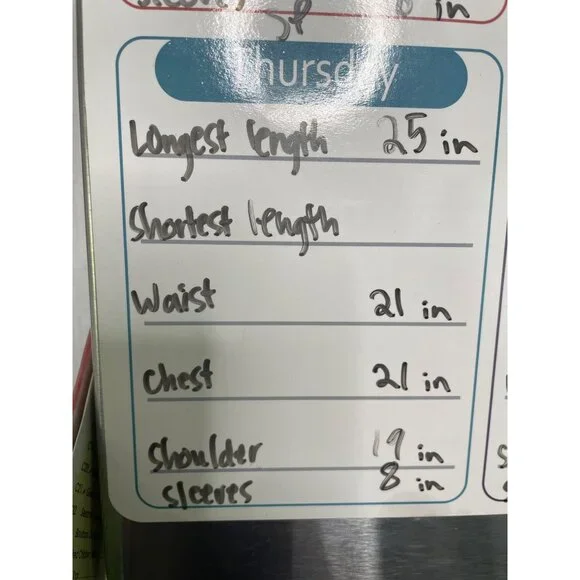 in
Thursday
Longest length 25 in
Shortest length
Waist 21 in
Chest 21 in
Shoulder 19 in
Sleeves 8 in